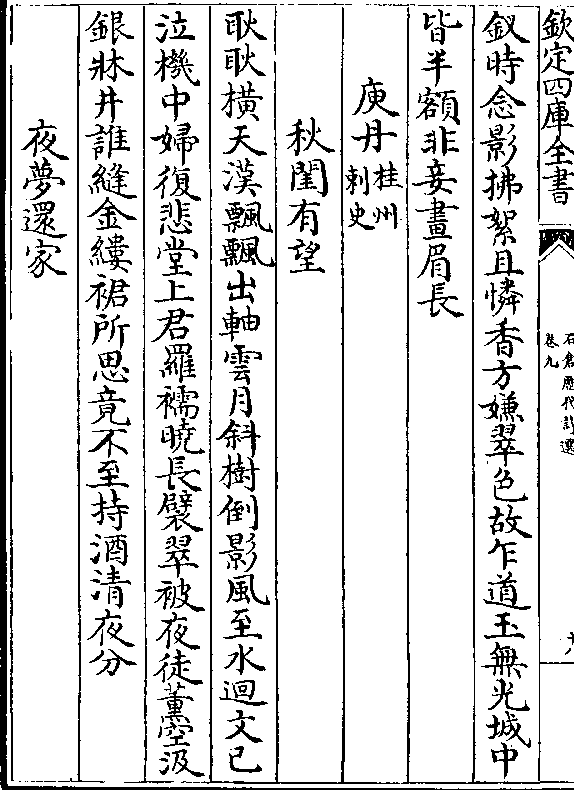 欽定四庫全書
石倉歷代詩選
卷九
十八
釵時念影拂絮且憐香方嫌翠色故乍道玉無光城中
皆半額非妾畫眉長
庾丹桂州刺史
秋閨有望
耿耿橫天漢飄飄出軸雲月斜樹倒影風至水迴文已
泣機中婦復悲堂上君羅襦曉長襞翠被夜徒薰空汲
銀牀井誰縫金縷裙所思竟不至持酒清夜分
夜夢還家